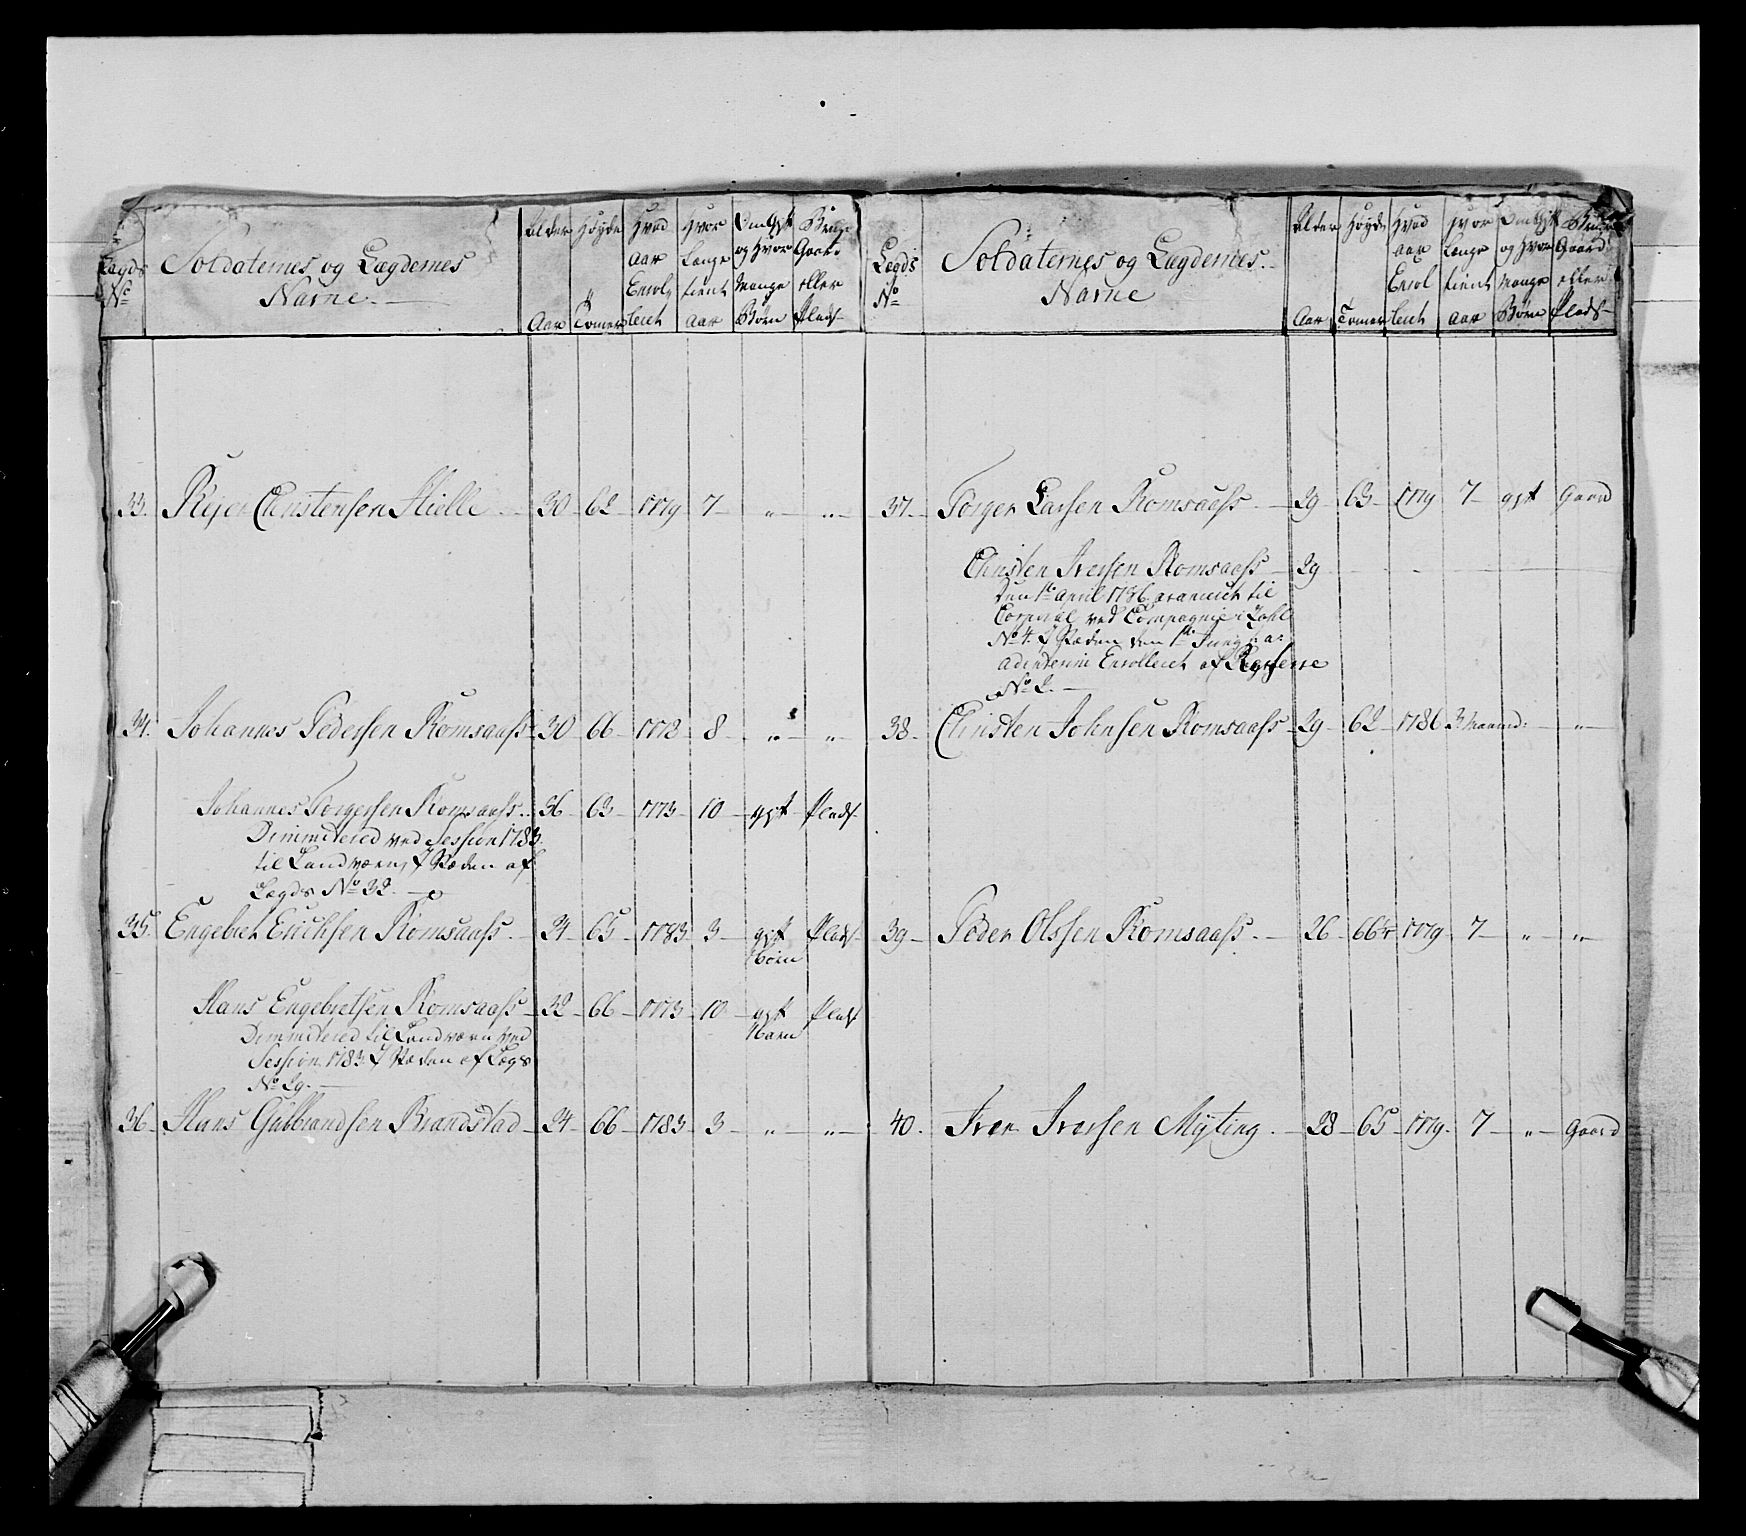 Lægds
No
Soldaternes og Lægdernes
Nafne.
Alder
Aar
Høyde
Tomer
Hvad
aar
Enrol
leret
Hvor
Længe
tient
aar
Om Gift
og Hvor
Mange
Børn
Bruger
Gaard
eller
Plads
33. Rejer Christensen Hielle 30 62 1779 7 " "
34. Johannes Pedersen Romsaass 30 66 1778 8 " "
Johannes Torgersen Romsaass 36 63 1773 10 gift Plads
Dimmitered ved Session 1783
til Landværn, I Stæden af
Lægds No 32.
35. Engebret Erichsen Romsaass 24 65 1783 3 gift Plads
Børn
Hans Engebretsen Romsaass 32 66 1773 10 gift Plads
Barn
Dimmitered til Landværn ved
Session 1783 I Stæden af Lægs
No 29.
36. Hans Gulbrandsen Brandstad 24 66 1783 3 " "
Lægds
No
Soldaternes og Lægdernes
Nafne
Alder
Aar
Høyde
Tomer
Hvad
aar
Enrol
leret
Hvor
Længe
tient
aar
Om Gift
og Hvor
Mange
Børn
Bruger
Gaard
eller
Plads
37. Torger Larsen Romsaass 29 63 1779 7 gift Gaard
Christen Iversen Romsaass 29
Den 1te April 1786 avanceret til
Corporal ved Compagnie i Lahl
No 4. I Stæden den 1te Juny
ad interim Enrolleret af Reserve
No 2.
38. Christen Johnsen Romsaass 29 62 1786 3 Maaned: "
39 Peder Olssen Romsaass. 26 66 1779 7 " "
40. Iver Iversen Myting. 28 65 1779. 7 " Gaard